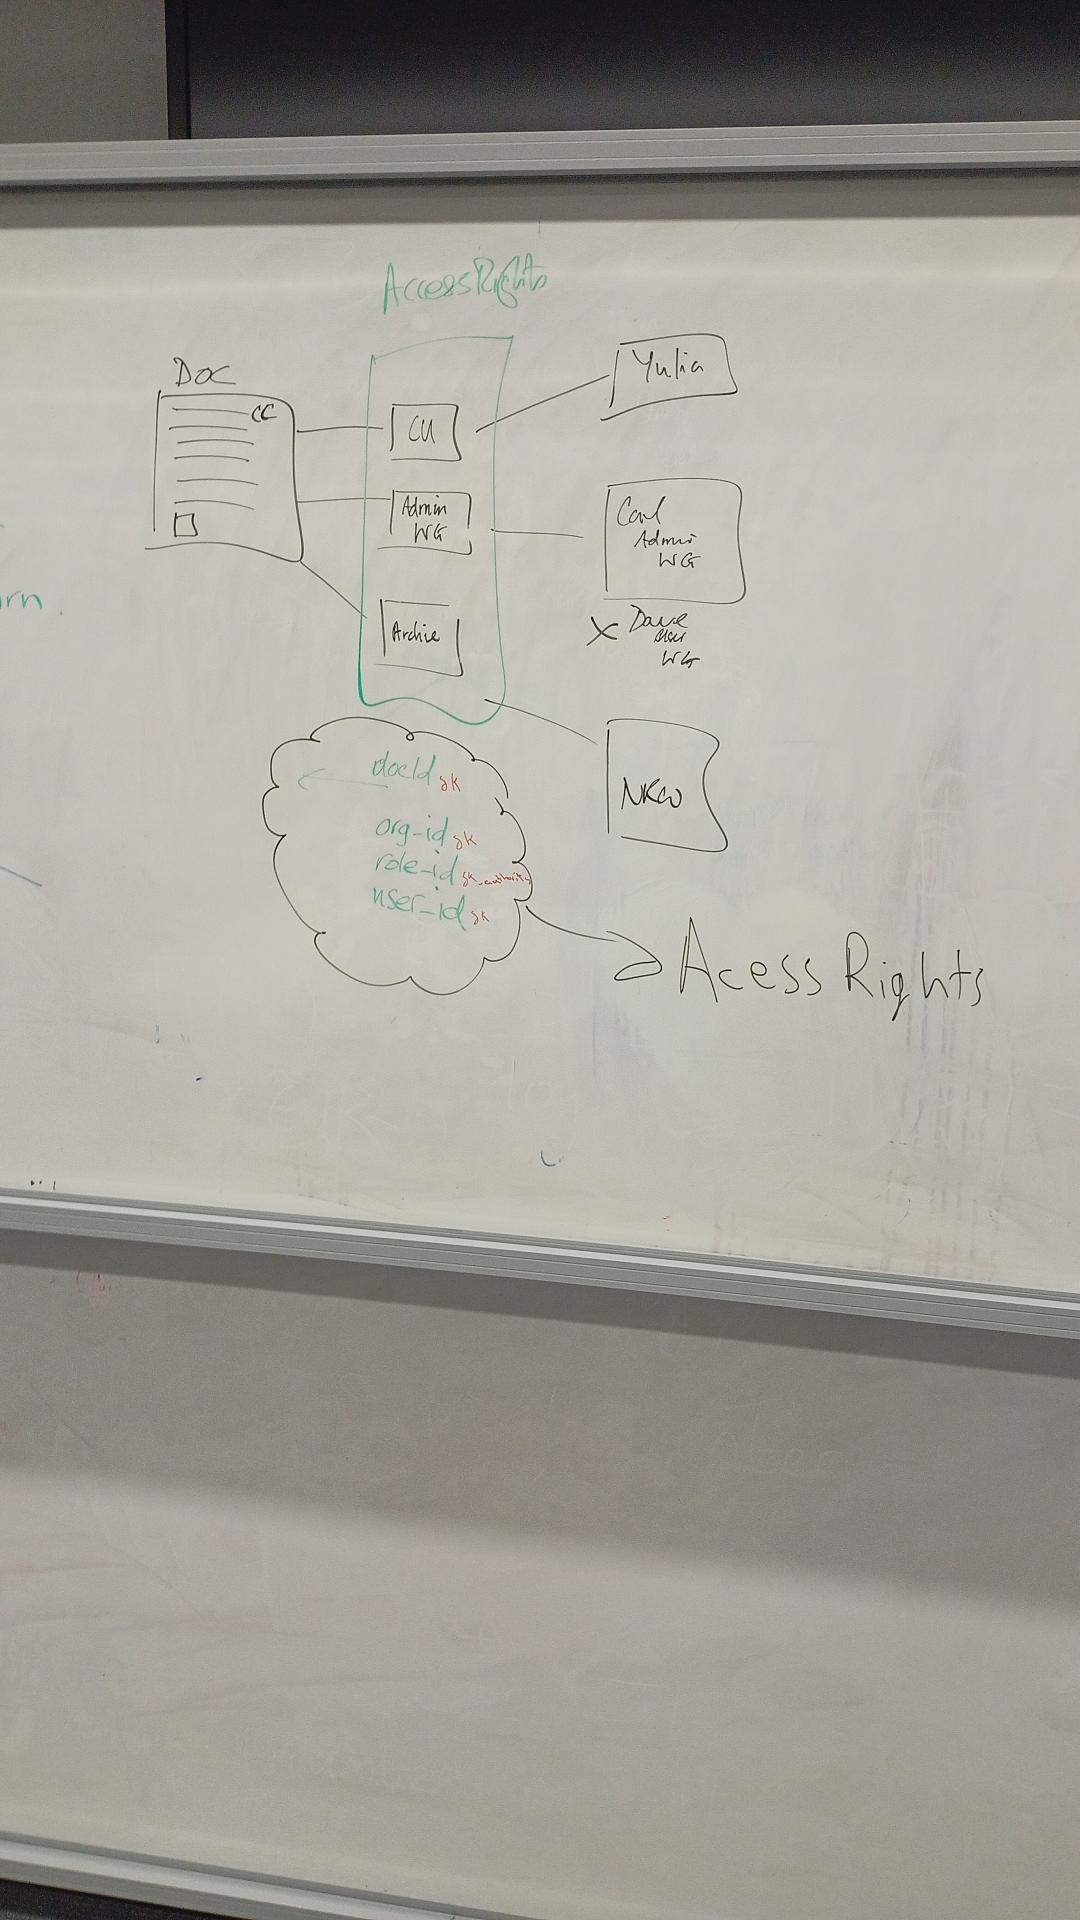 AccessRights
Doc
CC
CU
Yulia
Admin
WG
Carl
Admin
WG
Archie
X Dave
User
WG
NRW
docId sk
org-id sk
role-id sk_authority
user_id sk
Acess Rights
rn.